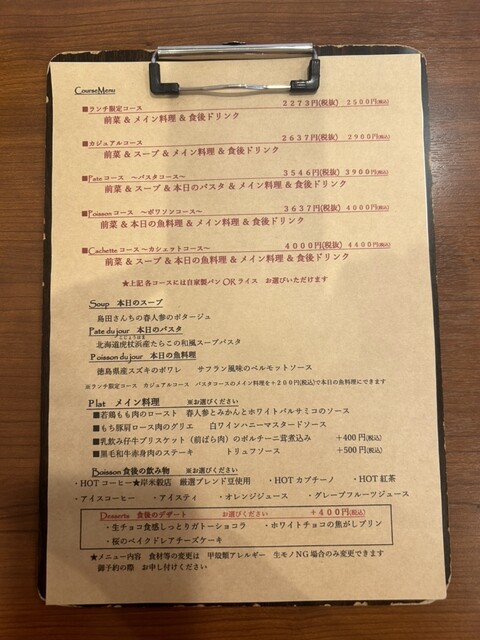 Course Menu
■ランチ限定コース 2273円(税抜) 2500円(税込)
前菜 & メイン料理 & 食後ドリンク
■カジュアルコース 2637円(税抜) 2900円(税込)
前菜 & スープ & メイン料理 & 食後ドリンク
■Pateコース ～パスタコース～ 3546円(税抜) 3900円(税込)
前菜 & スープ & 本日のパスタ & メイン料理 & 食後ドリンク
■Poissonコース ～ポワソンコース～ 3637円(税抜) 4000円(税込)
前菜 & 本日の魚料理 & メイン料理 & 食後ドリンク
■Cachetteコース～カシェットコース～ 4000円(税抜) 4400円(税込)
前菜 & スープ & 本日の魚料理 & メイン料理 & 食後ドリンク
★上記各コースには自家製パン ORライス お選びいただけます
Soup 本日のスープ
島田さんちの春人参のポタージュ
Pate du jour 本日のパスタ
こじょうはま
北海道虎杖浜産たらこの和風スープパスタ
Poisson du jour 本日の魚料理
徳島県産スズキのポワレ サフラン風味のベルモットソース
※ランチ限定コース カジュアルコース パスタコースのメイン料理を+200円(税込)で本日の魚料理にできます
Plat メイン料理 ※お選びください
■若鶏もも肉のロースト 春人参とみかんとホワイトバルサミコのソース
■もち豚肩ロース肉のグリエ 白ワインハニーマスタードソース
■乳飲み仔牛ブリスケット(前ばら肉)のポルチーニ茸煮込み +400円(税込)
■黒毛和牛赤身肉のステーキ トリュフソース +500円(税込)
Boisson 食後の飲み物 ※お選びください
・HOTコーヒー★岸米穀店 厳選ブレンド豆使用 ・HOTカプチーノ ・HOT紅茶
・アイスコーヒー ・アイスティ ・オレンジジュース ・グレープフルーツジュース
Desserts 食後のデザート お選びください +400円(税込)
・生チョコ食感しっとりガトーショコラ ・ホワイトチョコの焦がしプリン
・桜のベイクドレアチーズケーキ
★メニュー内容 食材等の変更は 甲殻類アレルギー 生モノNG場合のみ変更できます
御予約の際 お申し付けください